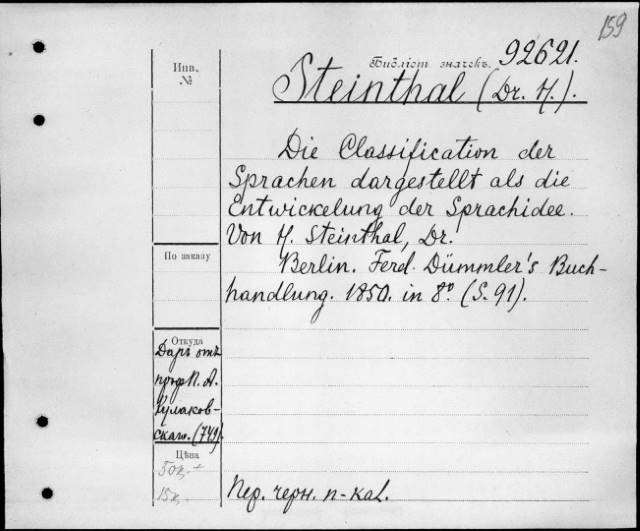 159
Библіот. значекъ. 92621.
Инв.
№
Steinthal (Dr. H.).
Die Classification der
Sprachen dargestellt als die
Entwickelung der Sprachidee.
Von H. Steinthal, Dr.
По заказу
Berlin. Ferd. Dümmler's Buch-
handlung. 1850. in 8º. (S. 91).
Откуда
Даръ отъ
проф П. А.
Кулаков-
скаго. (749).
Цѣна
50к.
15к.
Пер. черн. п-кал.